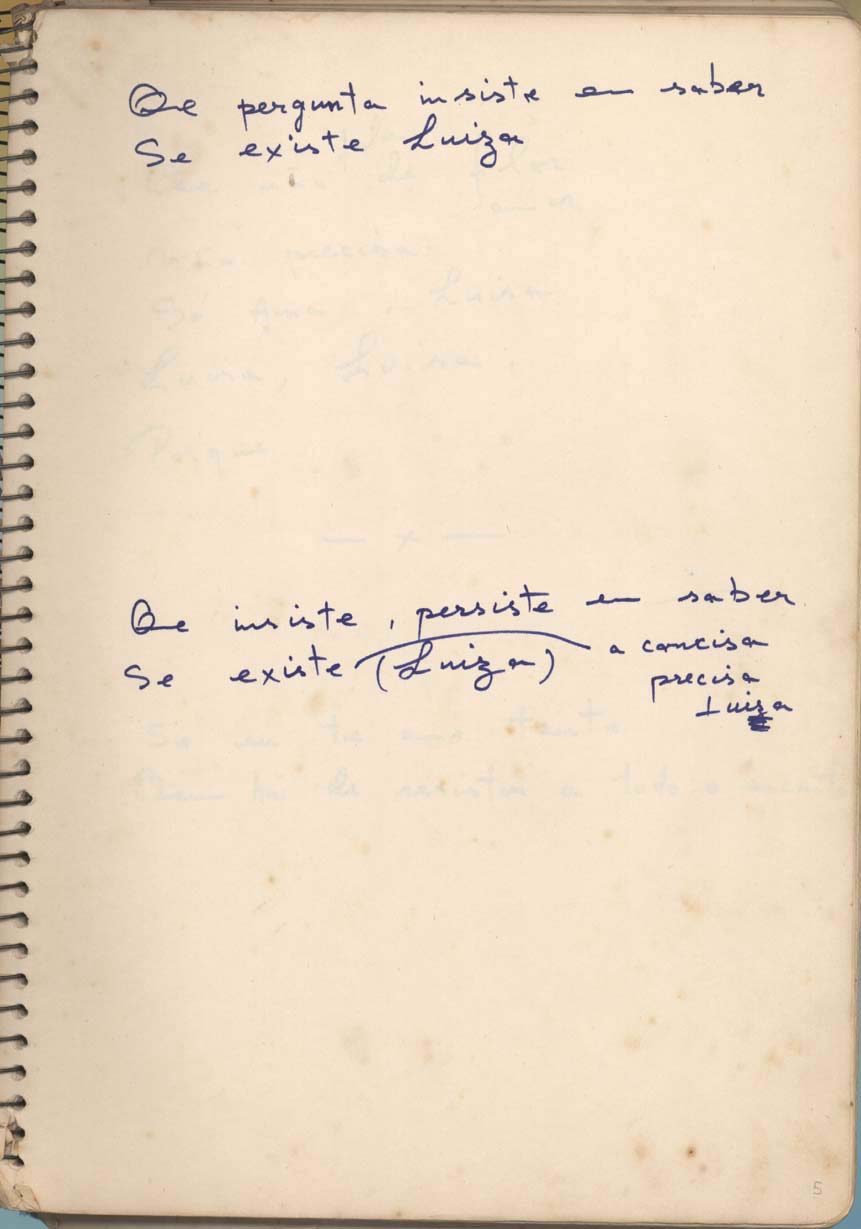 Que pergunta insiste em saber
Se existe Luiza
Que insiste, persiste em saber
Se existe (Luiza) a concisa
precisa
Luiza
5